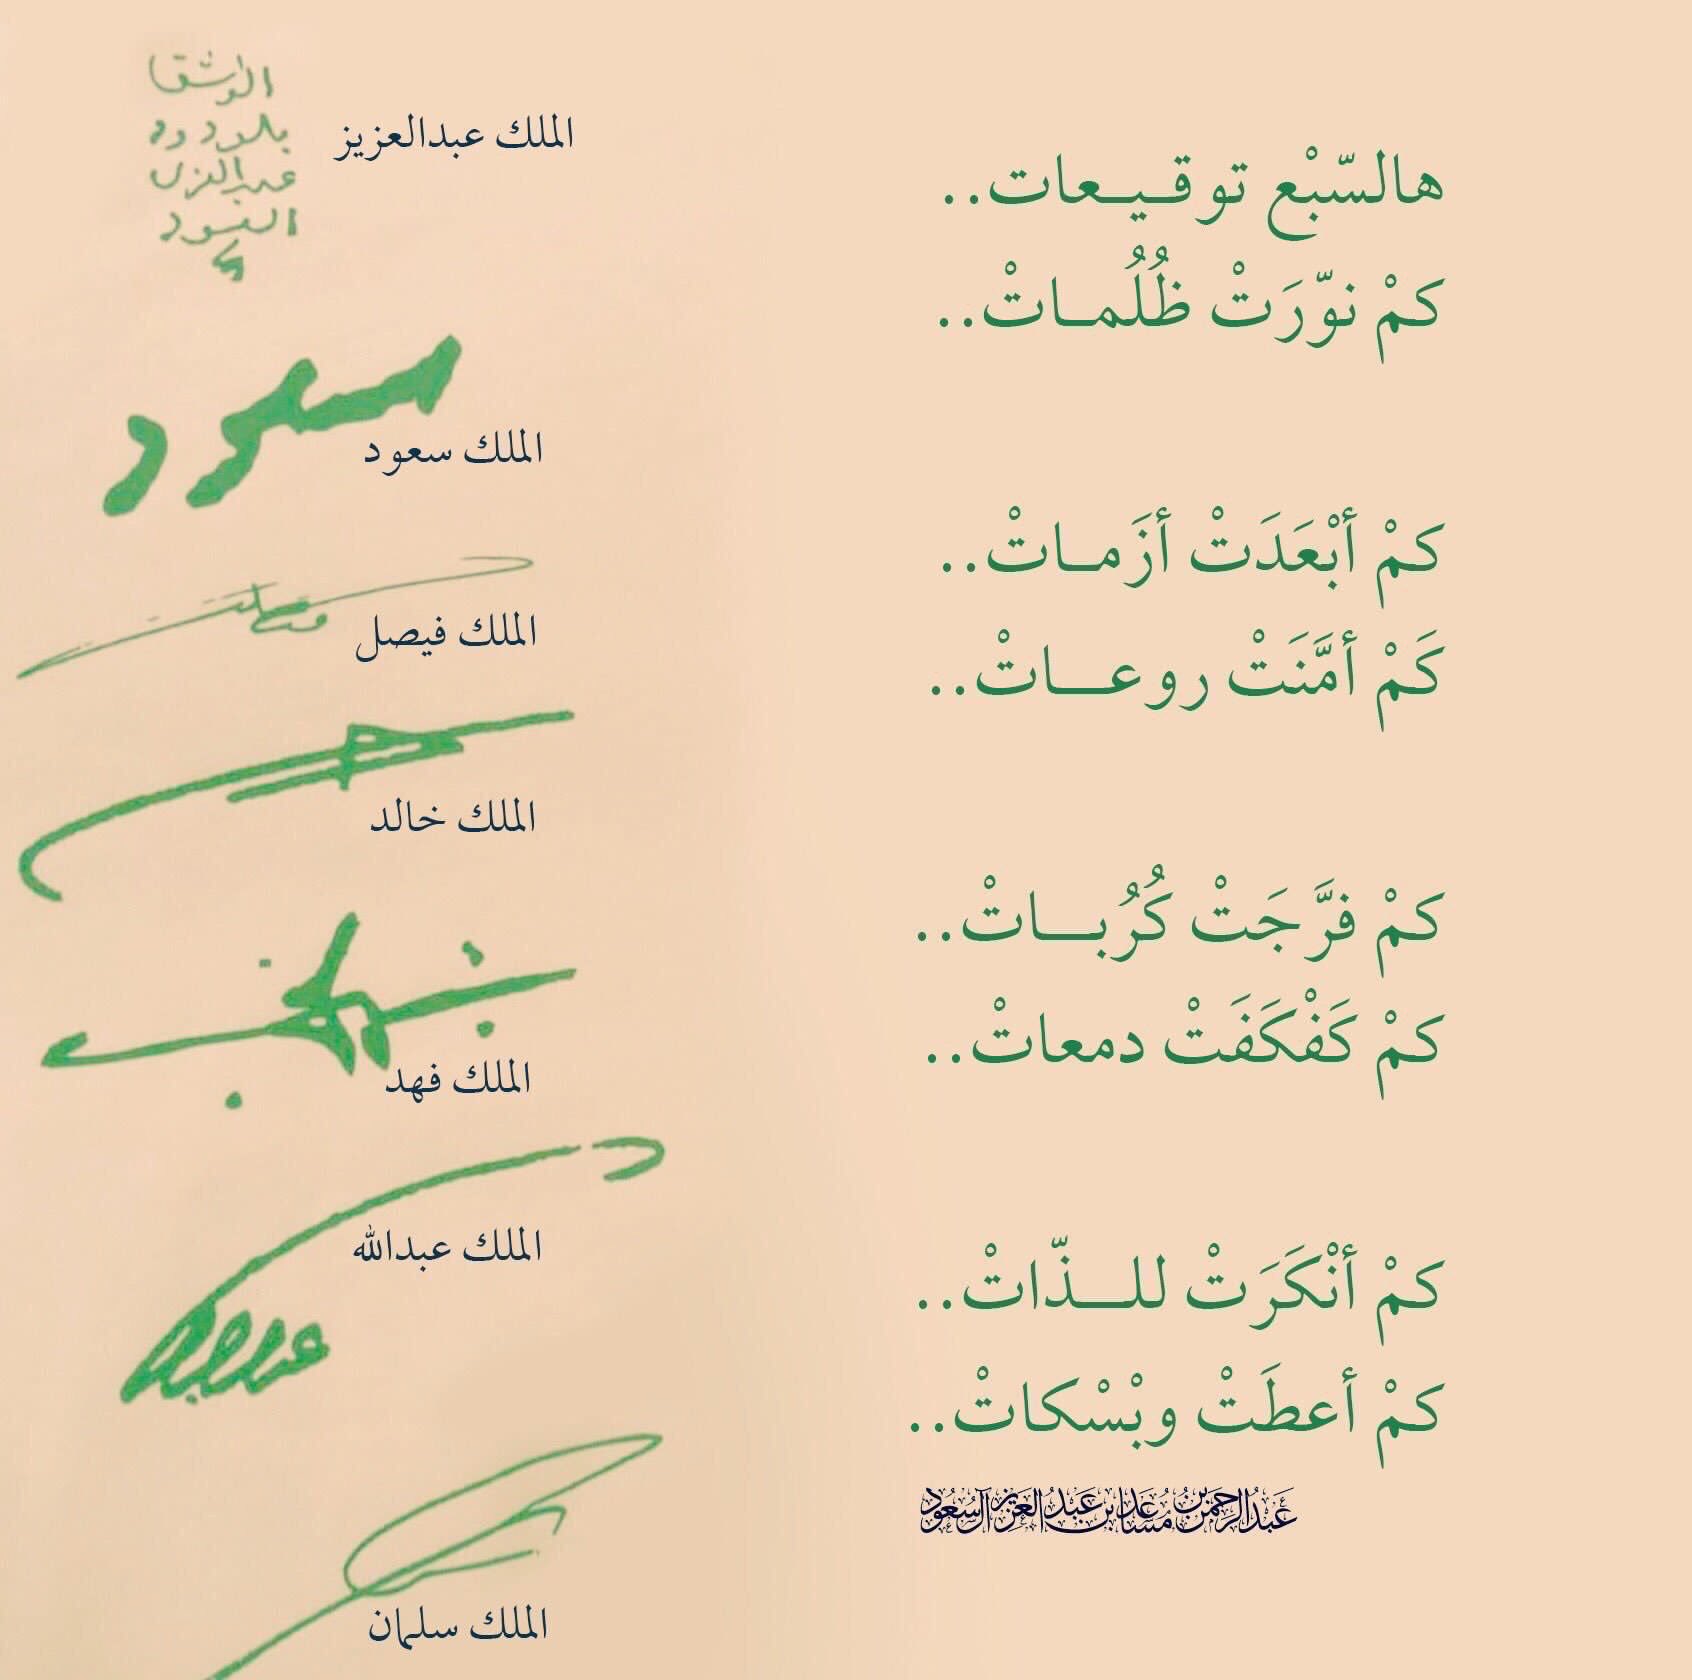 هالسّبْع توقـيـعات..
كمْ نوّرَتْ ظُلُمـاتْ..
كمْ أبْعَدَتْ أزَمـاتْ..
كَمْ أمَّنَتْ روعـــاتْ..
كمْ فرَّجَتْ كُرُبـــاتْ..
كمْ كَفْكَفَتْ دمعاتْ..
كمْ أنْكَرَتْ للـــذّاتْ..
كمْ أعطَتْ وبْسْكاتْ..
عَبدُالرحمن بن مُساعد بن عَبدُالعَزيز آل سُعُود
الملك عبدالعزيز
سعود
الملك سعود
الملك فيصل
الملك خالد
الملك فهد
الملك عبدالله
الملك سلمان